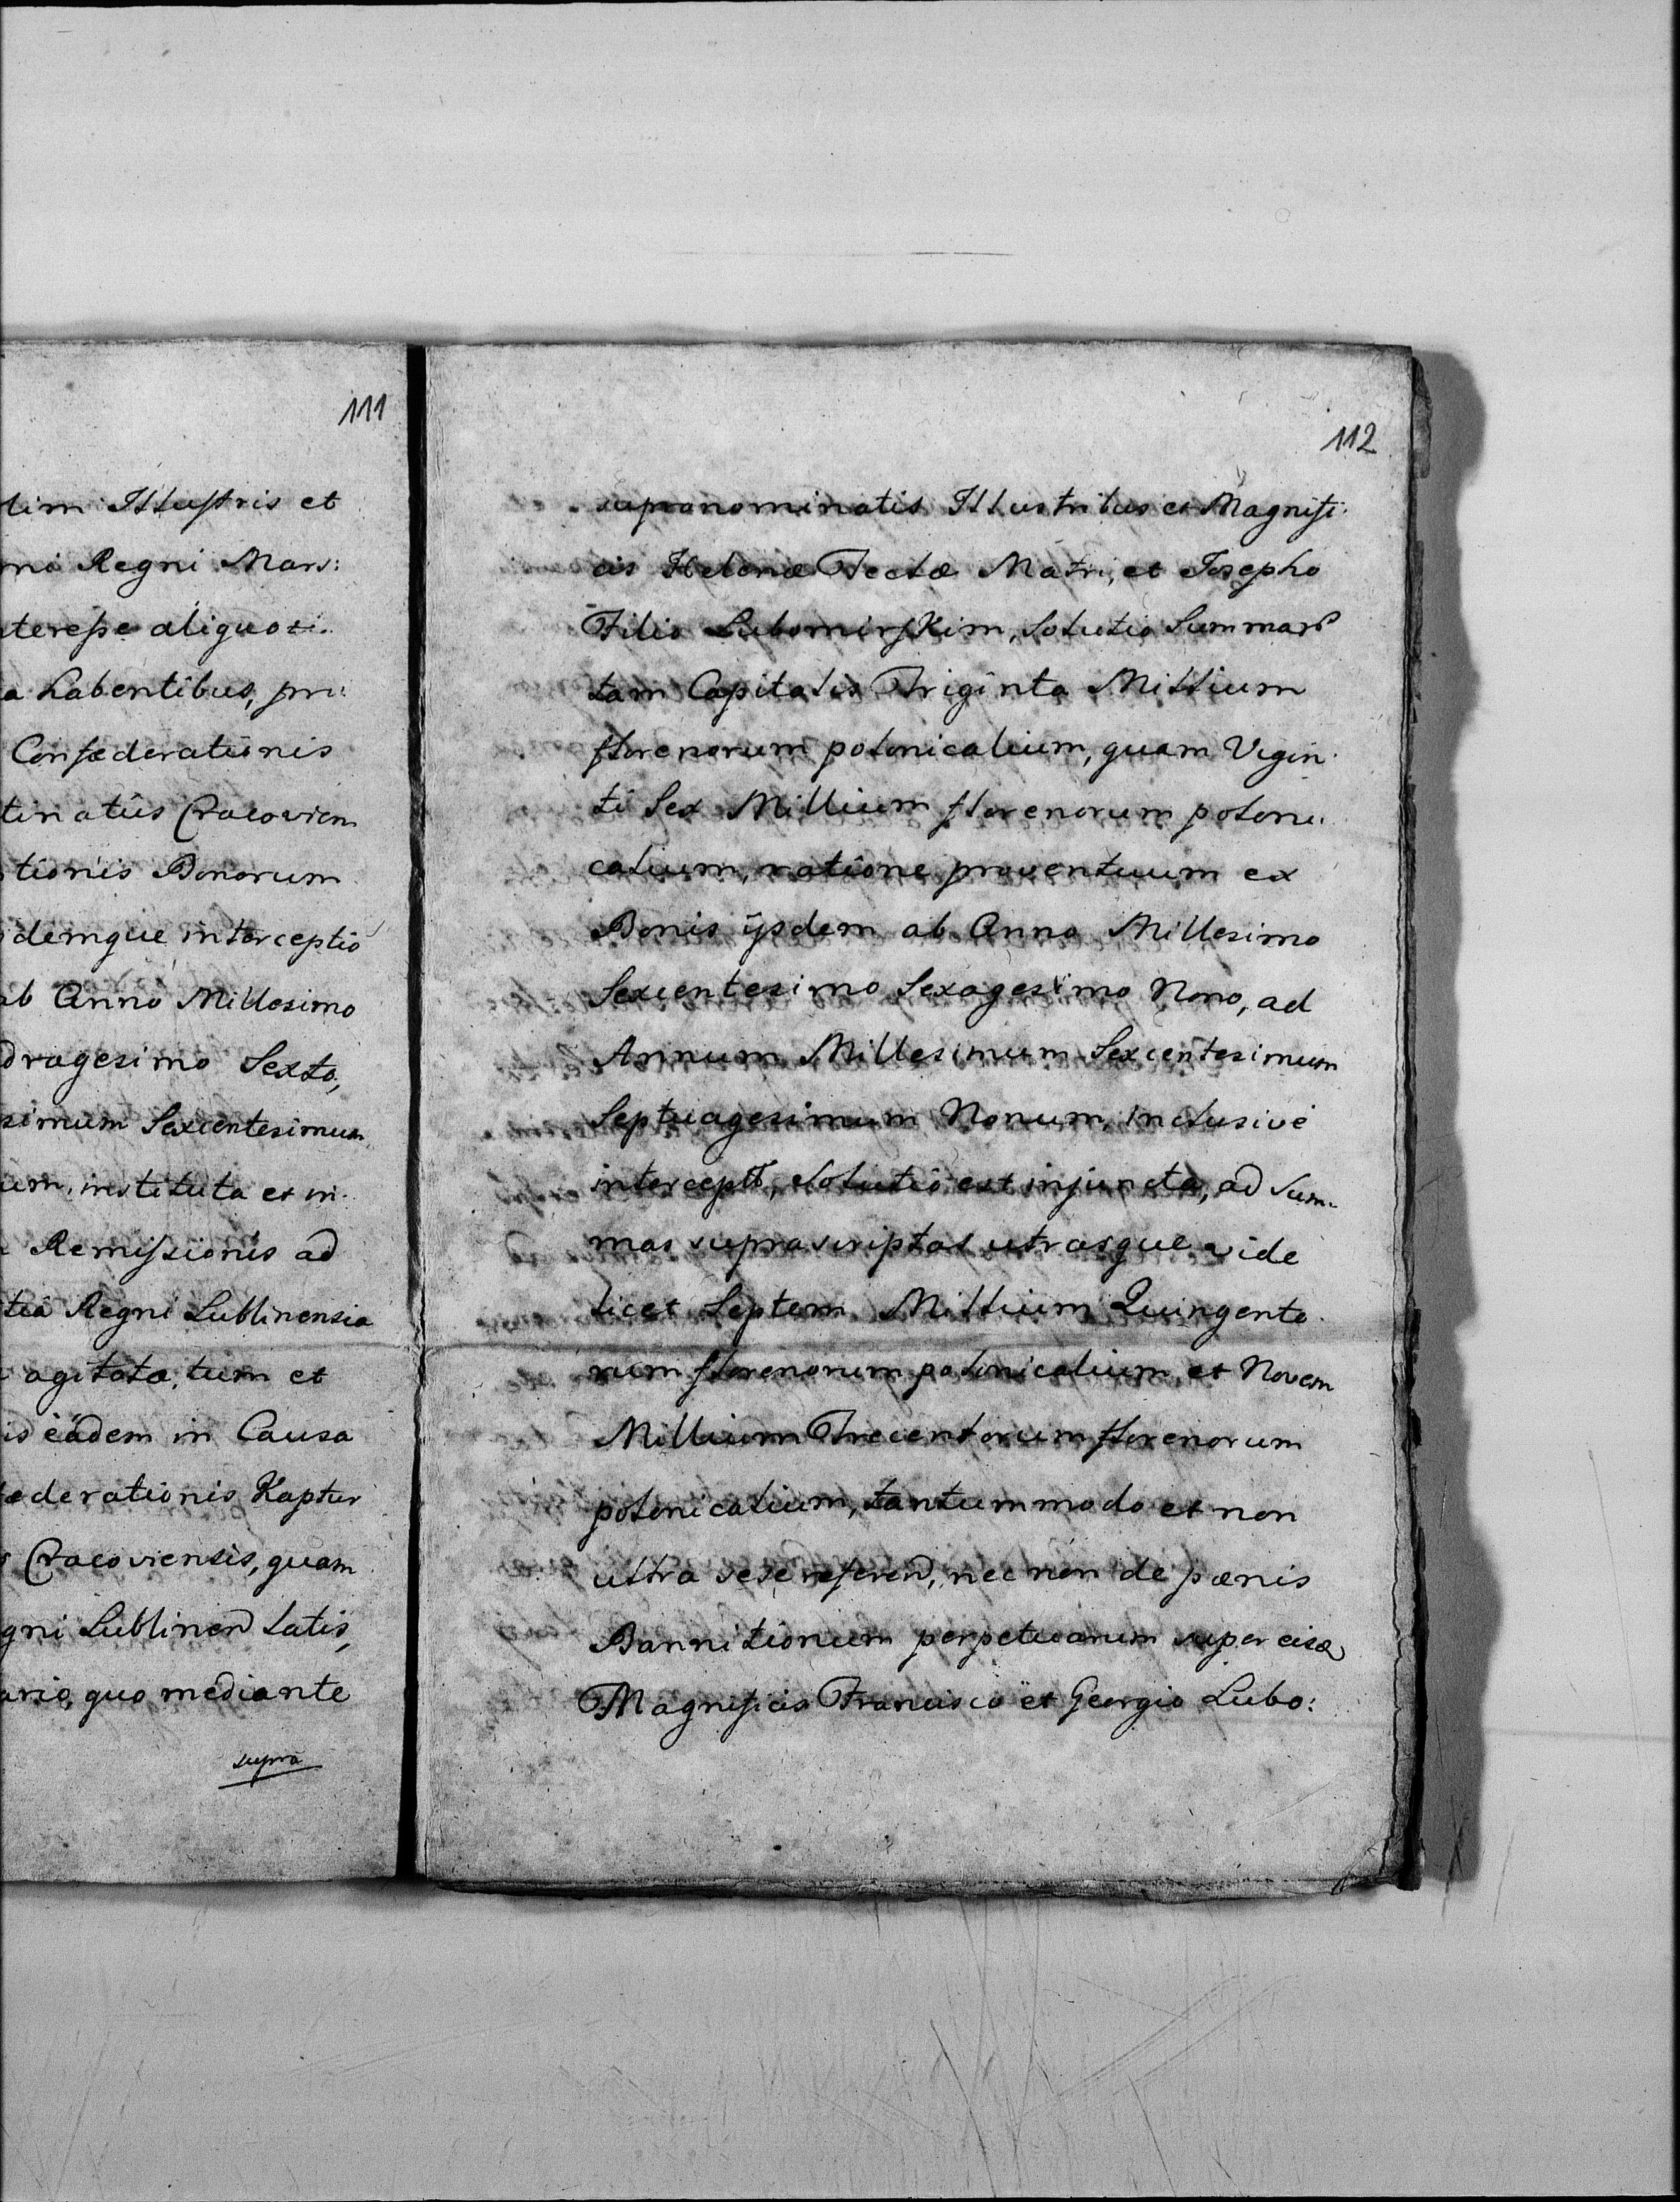 111
lim Illustris et
mi Regni Mars:
teresse aliquoti
a Labentibus, pri:
Confæderationis
tinatûs Cracovien
tionis Bonorum
demque interceptio
ab Anno Millesimo
dragesimo Sexto,
simum Sexcentesimum
um, instituta et in
Remissionis ad
tia Regni Lublinensia
agitata, tum et
is eâdem in Causa
æderationis Kaptur
Cracoviensis, quam
gni Lublinen Latis,
ario, quo mediante
supra
112
supranominatis Illustribus et Magnifi
cis Helenæ Teclæ Matri, et Josepho
Filio Lubomirskim, Solutio Summar
tam Capitalis Triginta Millium
florenorum polonicalium, quam Vigin
ti Sex Millium florenorum poloni
calium, ratione proventuum ex
Bonis ijsdem ab Anno Millesimo
Sexcentesimo Sexagesimo Nono, ad
Annum Millesimum Sexcentesimum
Septuagesimum Nonum, inclusivè
intercept, Solutio est injuncta, ad Sum
mas suprascriptas utrasque vide
licet Septem Millium Quingento
rum florenorum polonicalium, et Novem
Millium Trecentorum florenorum
polonicalium, tantummodo et non
ultra sese referend, nec non de pænis
Bannitionum perpetuarum super eisd
Magnificis Francisco et Georgio Lubo: